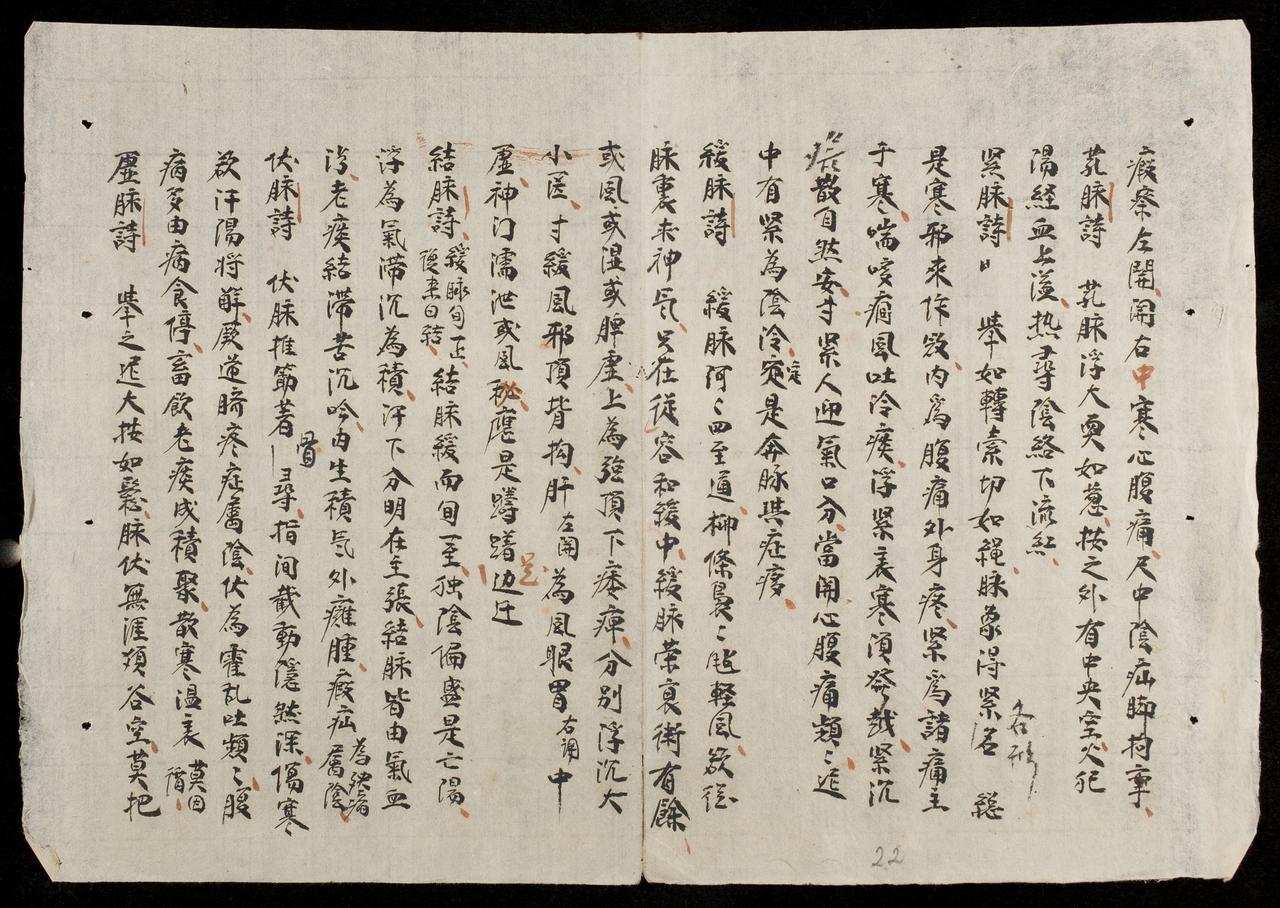 瘕察左関関右中寒心腹痛尺中陰疝脚拘挛
芤脉詩 芤脉浮大耎如葱按之外有中央空火犯
陽経血上溢热尋陰絡下流紅
緊脉詩曰 举如轉索切如绳脉象得緊名 総
各形
是寒邪来作㓂内爲腹痛外身疼緊爲諸痛主
于寒喘咳癎風吐冷痰浮緊表寒湏發越緊沉
散自然安寸緊人迎氣口分當関心腹痛類〻迟
中有紧為陰冷定是奔豚琪症疼
定
緩脉詩 緩脉阿〻四至通柳條裊〻颭軽風欲從
脉裏求神气只在從容和緩中緩脉荣衰衛有餘
或風或湿或脾虚上為強頂下痿痺分别浮沉大
小医寸緩風邪頂背拘肝左関為風眼胃右調中
虚神门濡泄或風秘應是蹒躇边迂
足
結脉詩 緩脉旬一止復来曰結結脉緩而旬一至独陰偏盛是亡陽
浮為氣滞沉為積汗下分明在主張結脉皆由氣血
滯老痰結滞苦沉吟内生積气外癰腫瘕疝屬陰
為殃
伏脉詩 伏脉推筋著骨尋指间截動隱然深傷寒
欲汗陽将解厥逆臍疼症屬陰伏為霍乱吐類〻腹
病多由病食停畜飲老痰成積聚散寒温裏莫因循
虚脉詩 举之迟大按如鬆脉伏無涯類谷空莫把
22